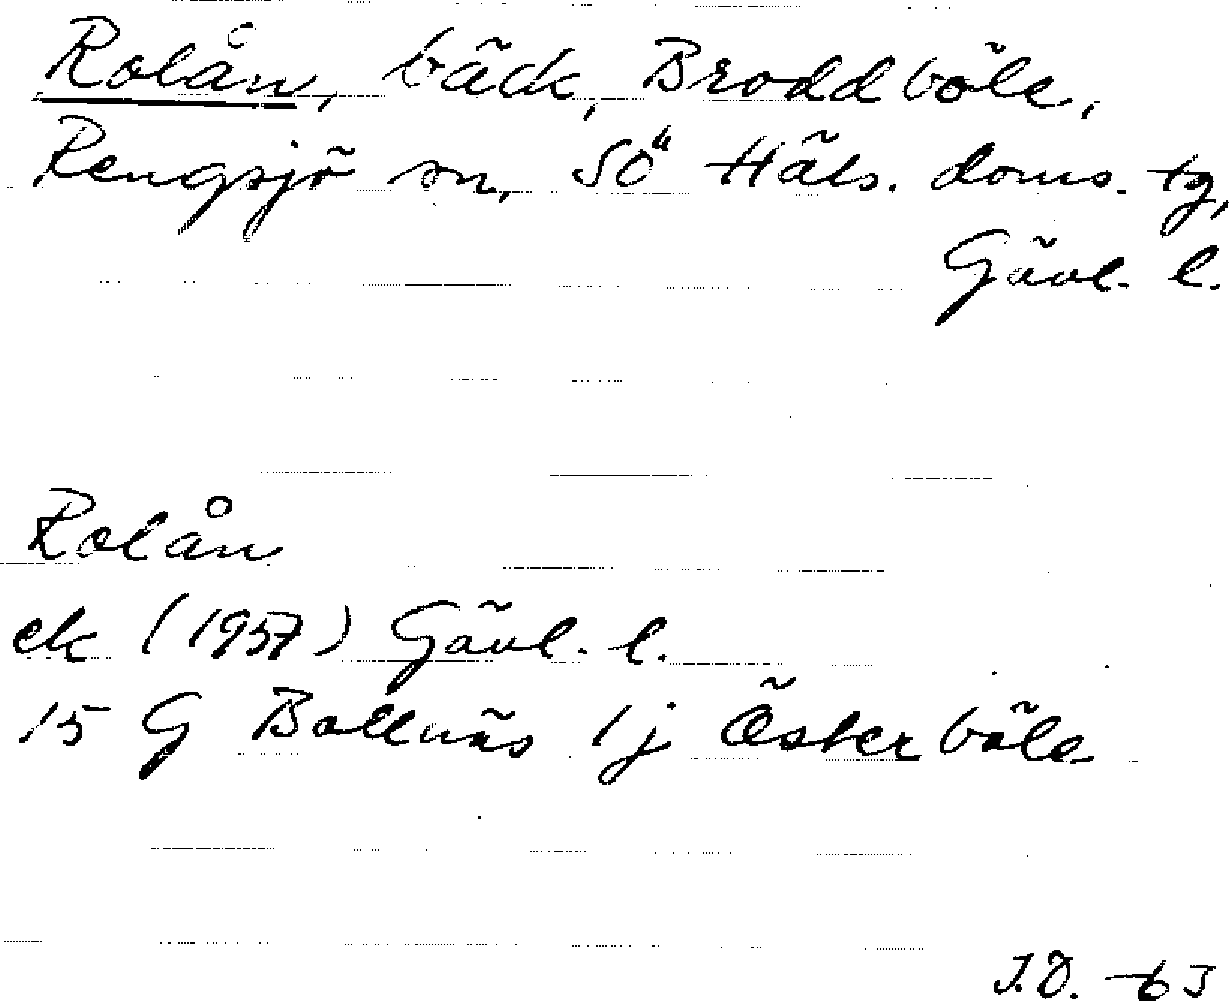 Rolån, bäck, Broddböle,
Rengsjö sn, SÖ Häls. doms. tg,
Gävl. l.
Rolån
ek (1957) Gävl. l.
15 G Bollnäs 1j Österböle
J.Ö. -63